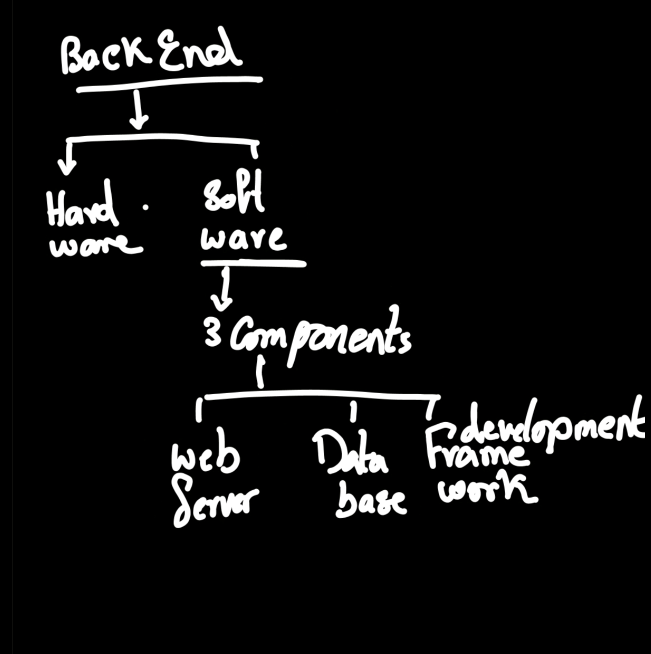 Back End
Hard
ware
Soft
ware
3 Components
Web
Server
Data
base
development
Frame
work